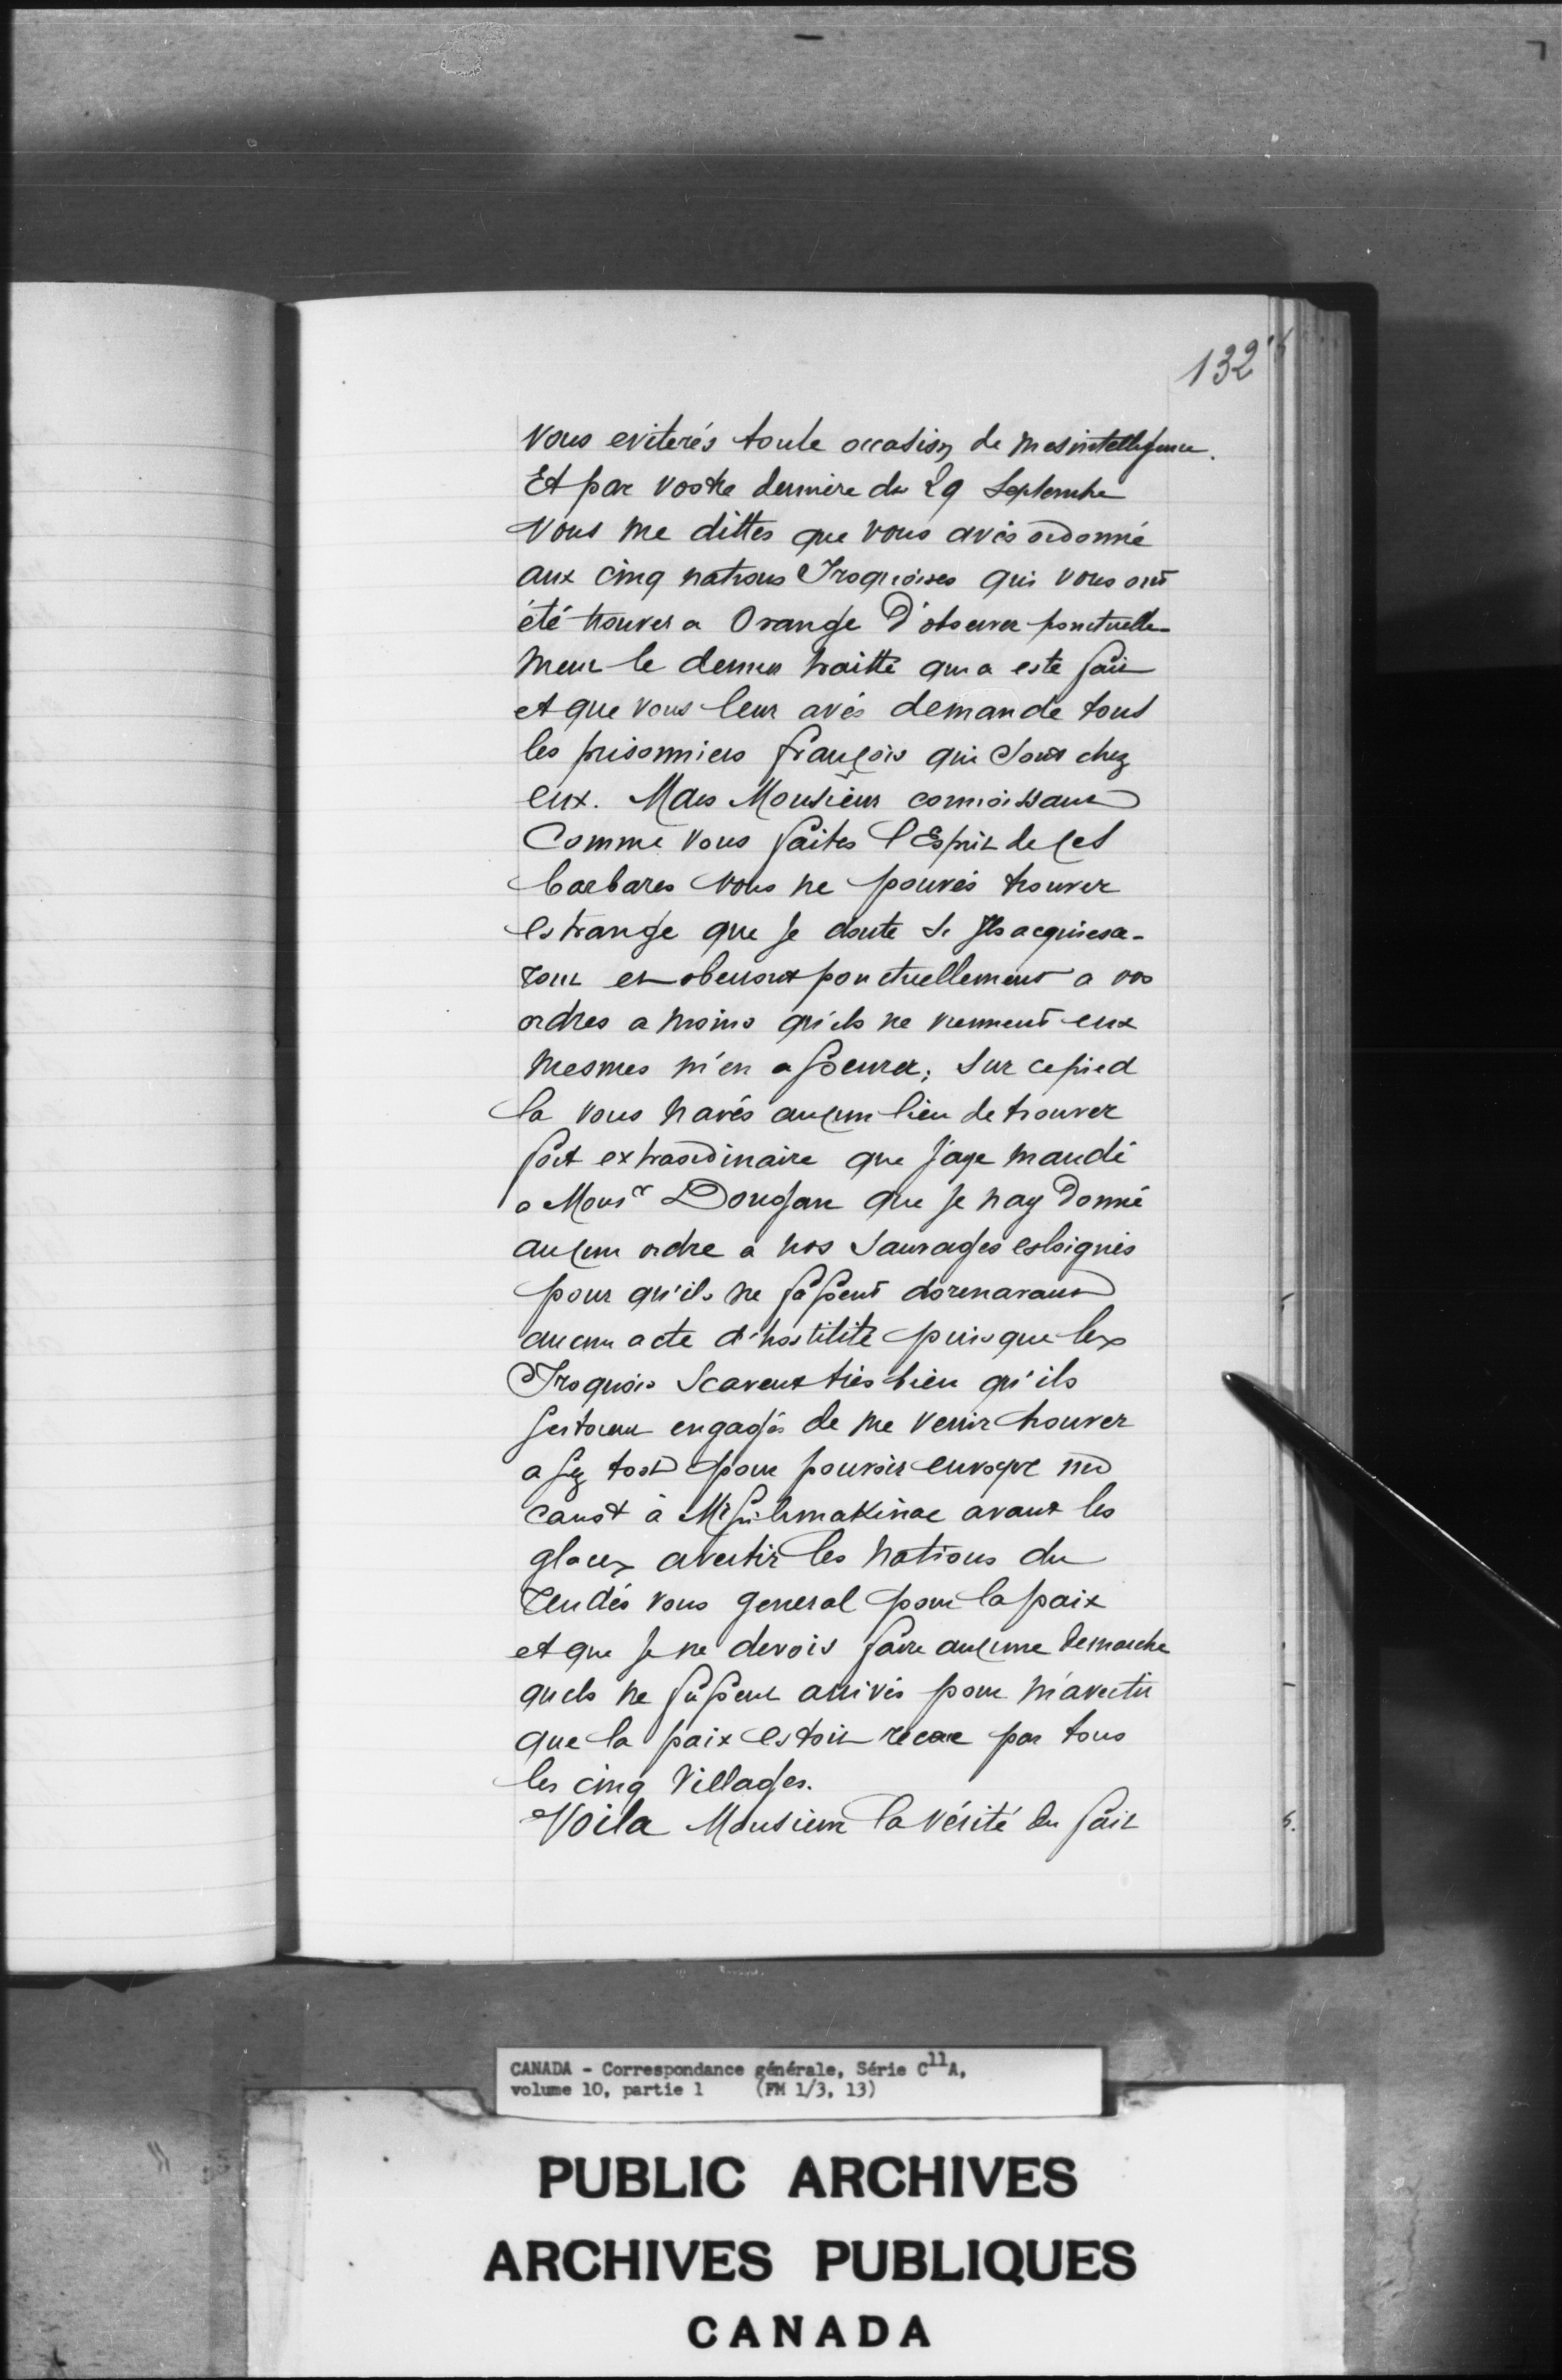 132
Vous eviterés toute occasion de mesintelligence.
Et par vostre derniere du 29 Septembre
Vous me dittes que vous avés ordonné
aux cinq nations Iroquoises qui vous ont
été trouver a Orange d'observer ponctuelle-
ment le dernier traitté qui a esté fait
et que vous leur avés demande tous
les prisonniers françois qui sont chez
eux. Mais Monsieur connoissant
Comme vous faites l'Esprit de ces
barbares vous ne pouvés trouver
estrange que je doute si Ils acquiesce-
ront et obeiront ponctuellement a vos
ordres a moins qu'ils ne viennent eux
mesmes m'en asseurer; Sur ce pied
la vous navés aucun lieu de trouver
fort extraordinaire que j'aye mandé
a Monsr Dongan que je nay donné
aucun ordre a nos Sauvages esloignés
pour qu'ils ne fassent dorenavant
aucun acte d'hostilité puisque les
Iroquois Scavent très bien qu'ils
sestoient engagés de me venir trouver
assez tost pour pouvoir envoyer un
canot à Missilimakinac avant les
glaces avertir les nations du
rendés vous general pour la paix
et que je ne devois faire aucune demarche
quils ne fussent arrivés pour m'avertir
que la paix estoit par tous
les cinq Villages.
Voila Monsieur la vérité du fait
CANADA - Correspondance générale, Série C11A,
volume 10, partie 1 (FM 1/3, 13)
PUBLIC ARCHIVES
ARCHIVES PUBLIQUES
CANADA